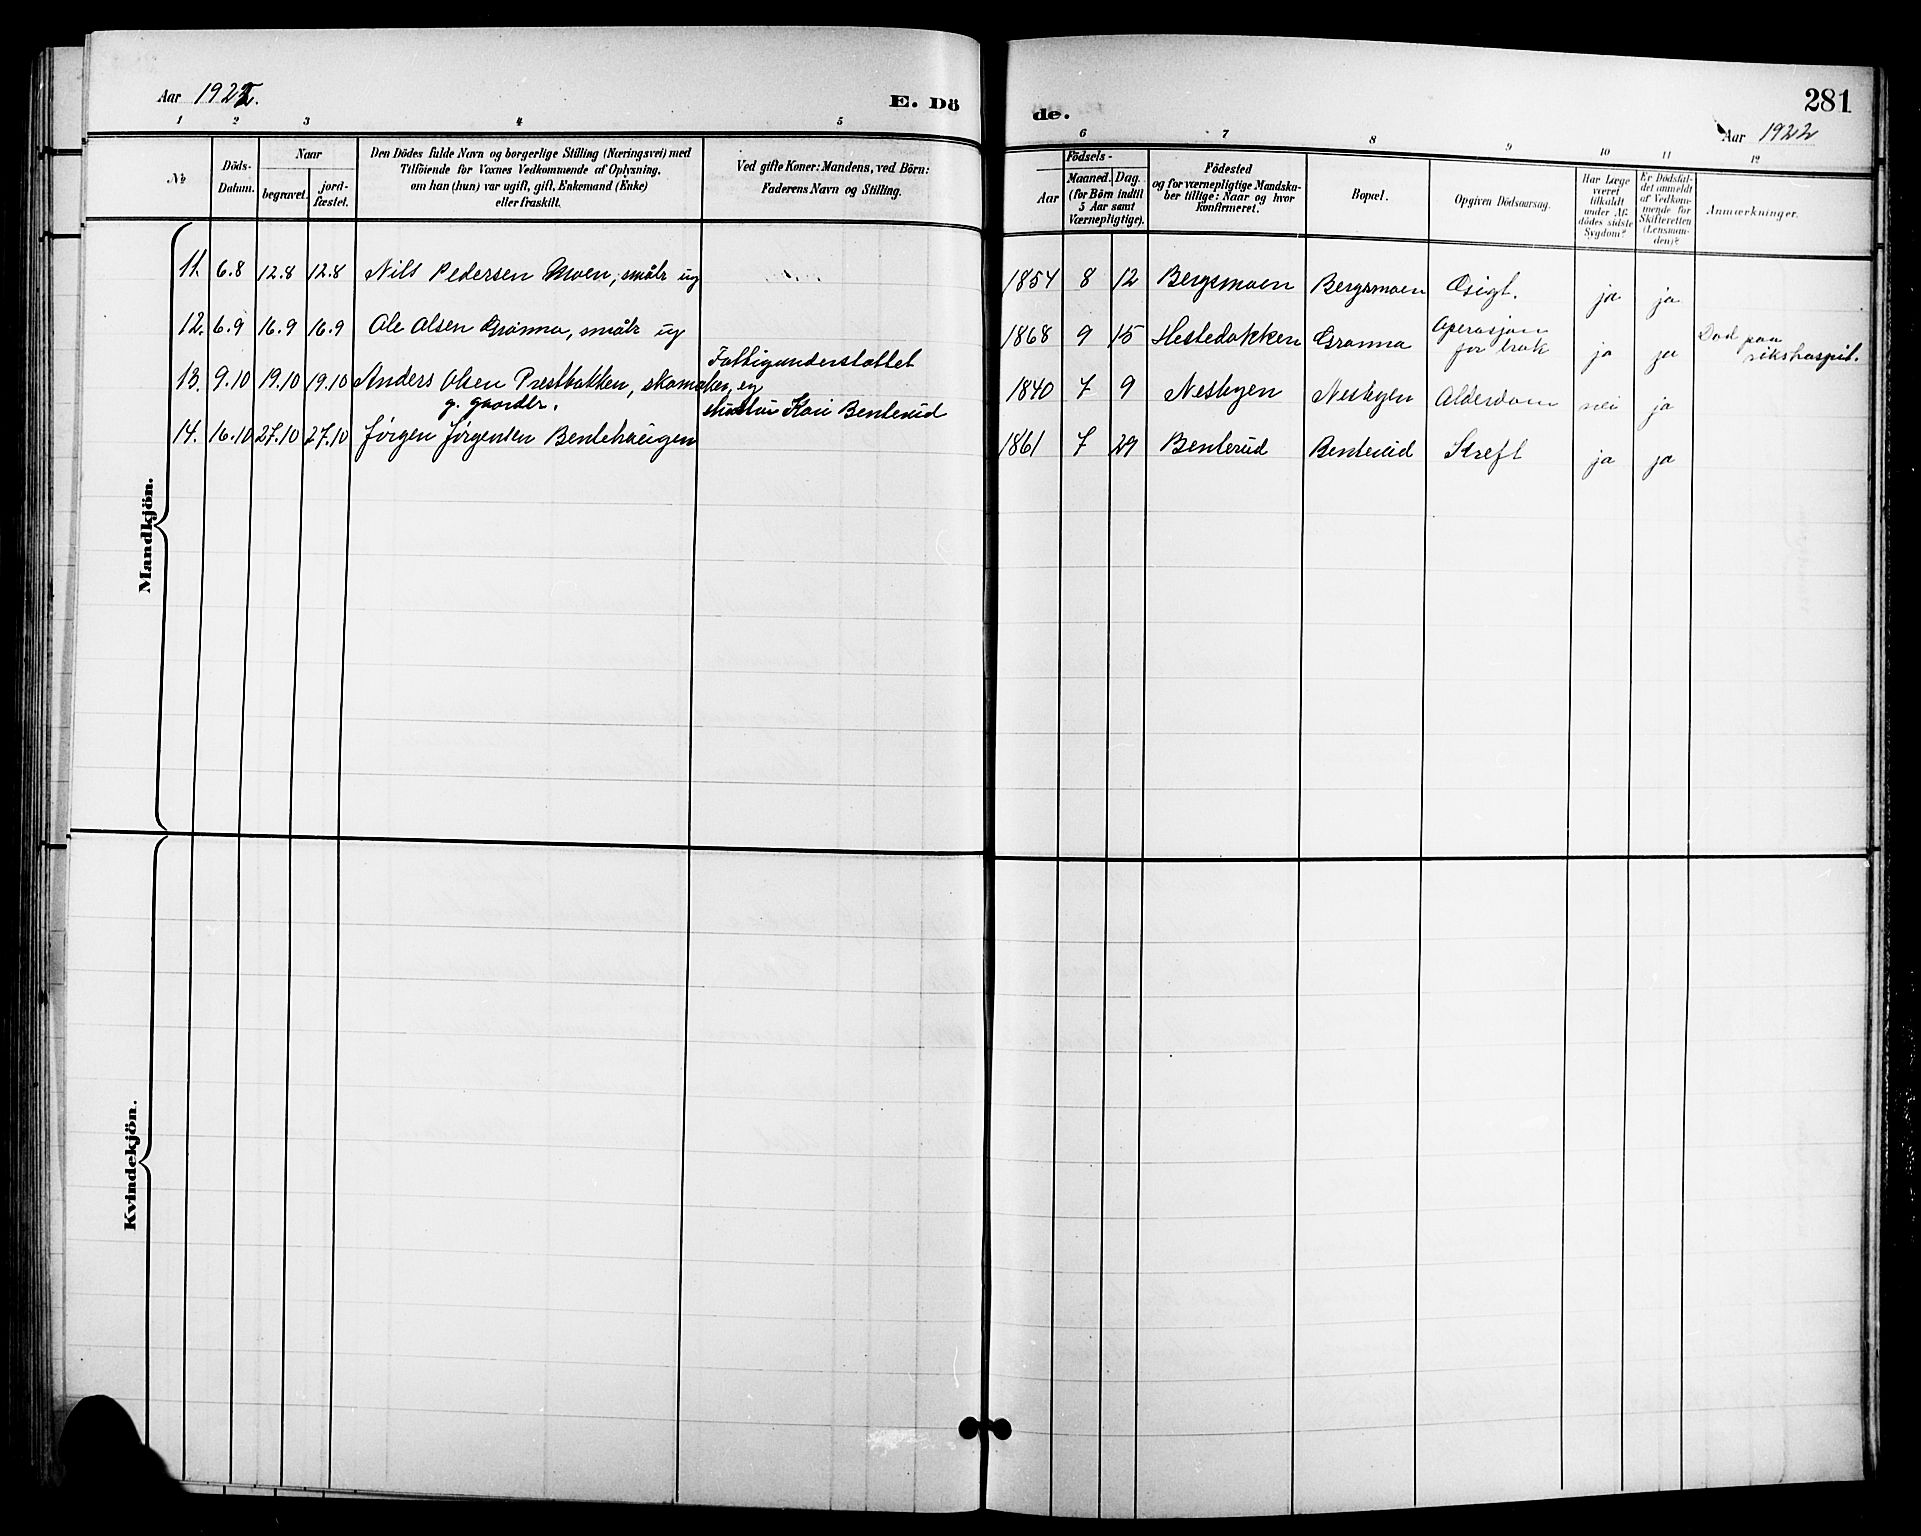 Aar 1922.
E. Dö
de.
281
Aar 1922
1 2 3 4 5
6 7 8 9 10 11 12
№
Döds-
Datum.
Naar
begravet.
jord-
fæstet.
Den Dödes fulde Navn og borgerlige Stilling (Næringsvei) med
Tilföiende for Voxnes Vedkommende af Oplysning,
om han (hun) var ugift, gift, Enkemand (Enke)
eller fraskilt.
Ved gifte Koner: Mandens, ved Börn:
Faderens Navn og Stilling.
Födsels-
Aar
Maaned.
Dag.
(for Börn indtil
5 Aar samt
Værnepligtige).
Födested
og for værnepligtige Mandska-
ber tillige: Naar og hvor
konfirmeret.
Bopæl.
Opgiven Dödsaarsag.
Har Læge
været
tilkaldt
under Af-
dödes sidste
Sygdom?
Er Dödsfal-
det anmeldt
af Vedkom-
mende for
Skifteretten
(Lensman-
den)?
Anmærkninger.
Mandkjön.
11. 6.8 12.8 12.8 Nils Pedersen Moen, smålr ug 1854 8 12 Bergsmoen Bergsmoen ja ja
12. 6.9 16.9 16.9 Ole Olsen Grønna, smålr ug 1868 9 15 Grønna Operasjon for brok ja ja Død paa rikshospit.
Fattigunderstøttet
13. 9.10 19.10 19.10 Anders Olsen Prestbakken, skomaker, eg 1840 7 9 Nesbyen Nesbyen Alderdom nei ja
g. gaardbr. hustru Kari Benterud
14. 16.10 27.10 27.10 Jørgen Jørgensen Bentehaugen 1861 7 29 Benterud Benterud Kreft ja ja
Kvindekjön.